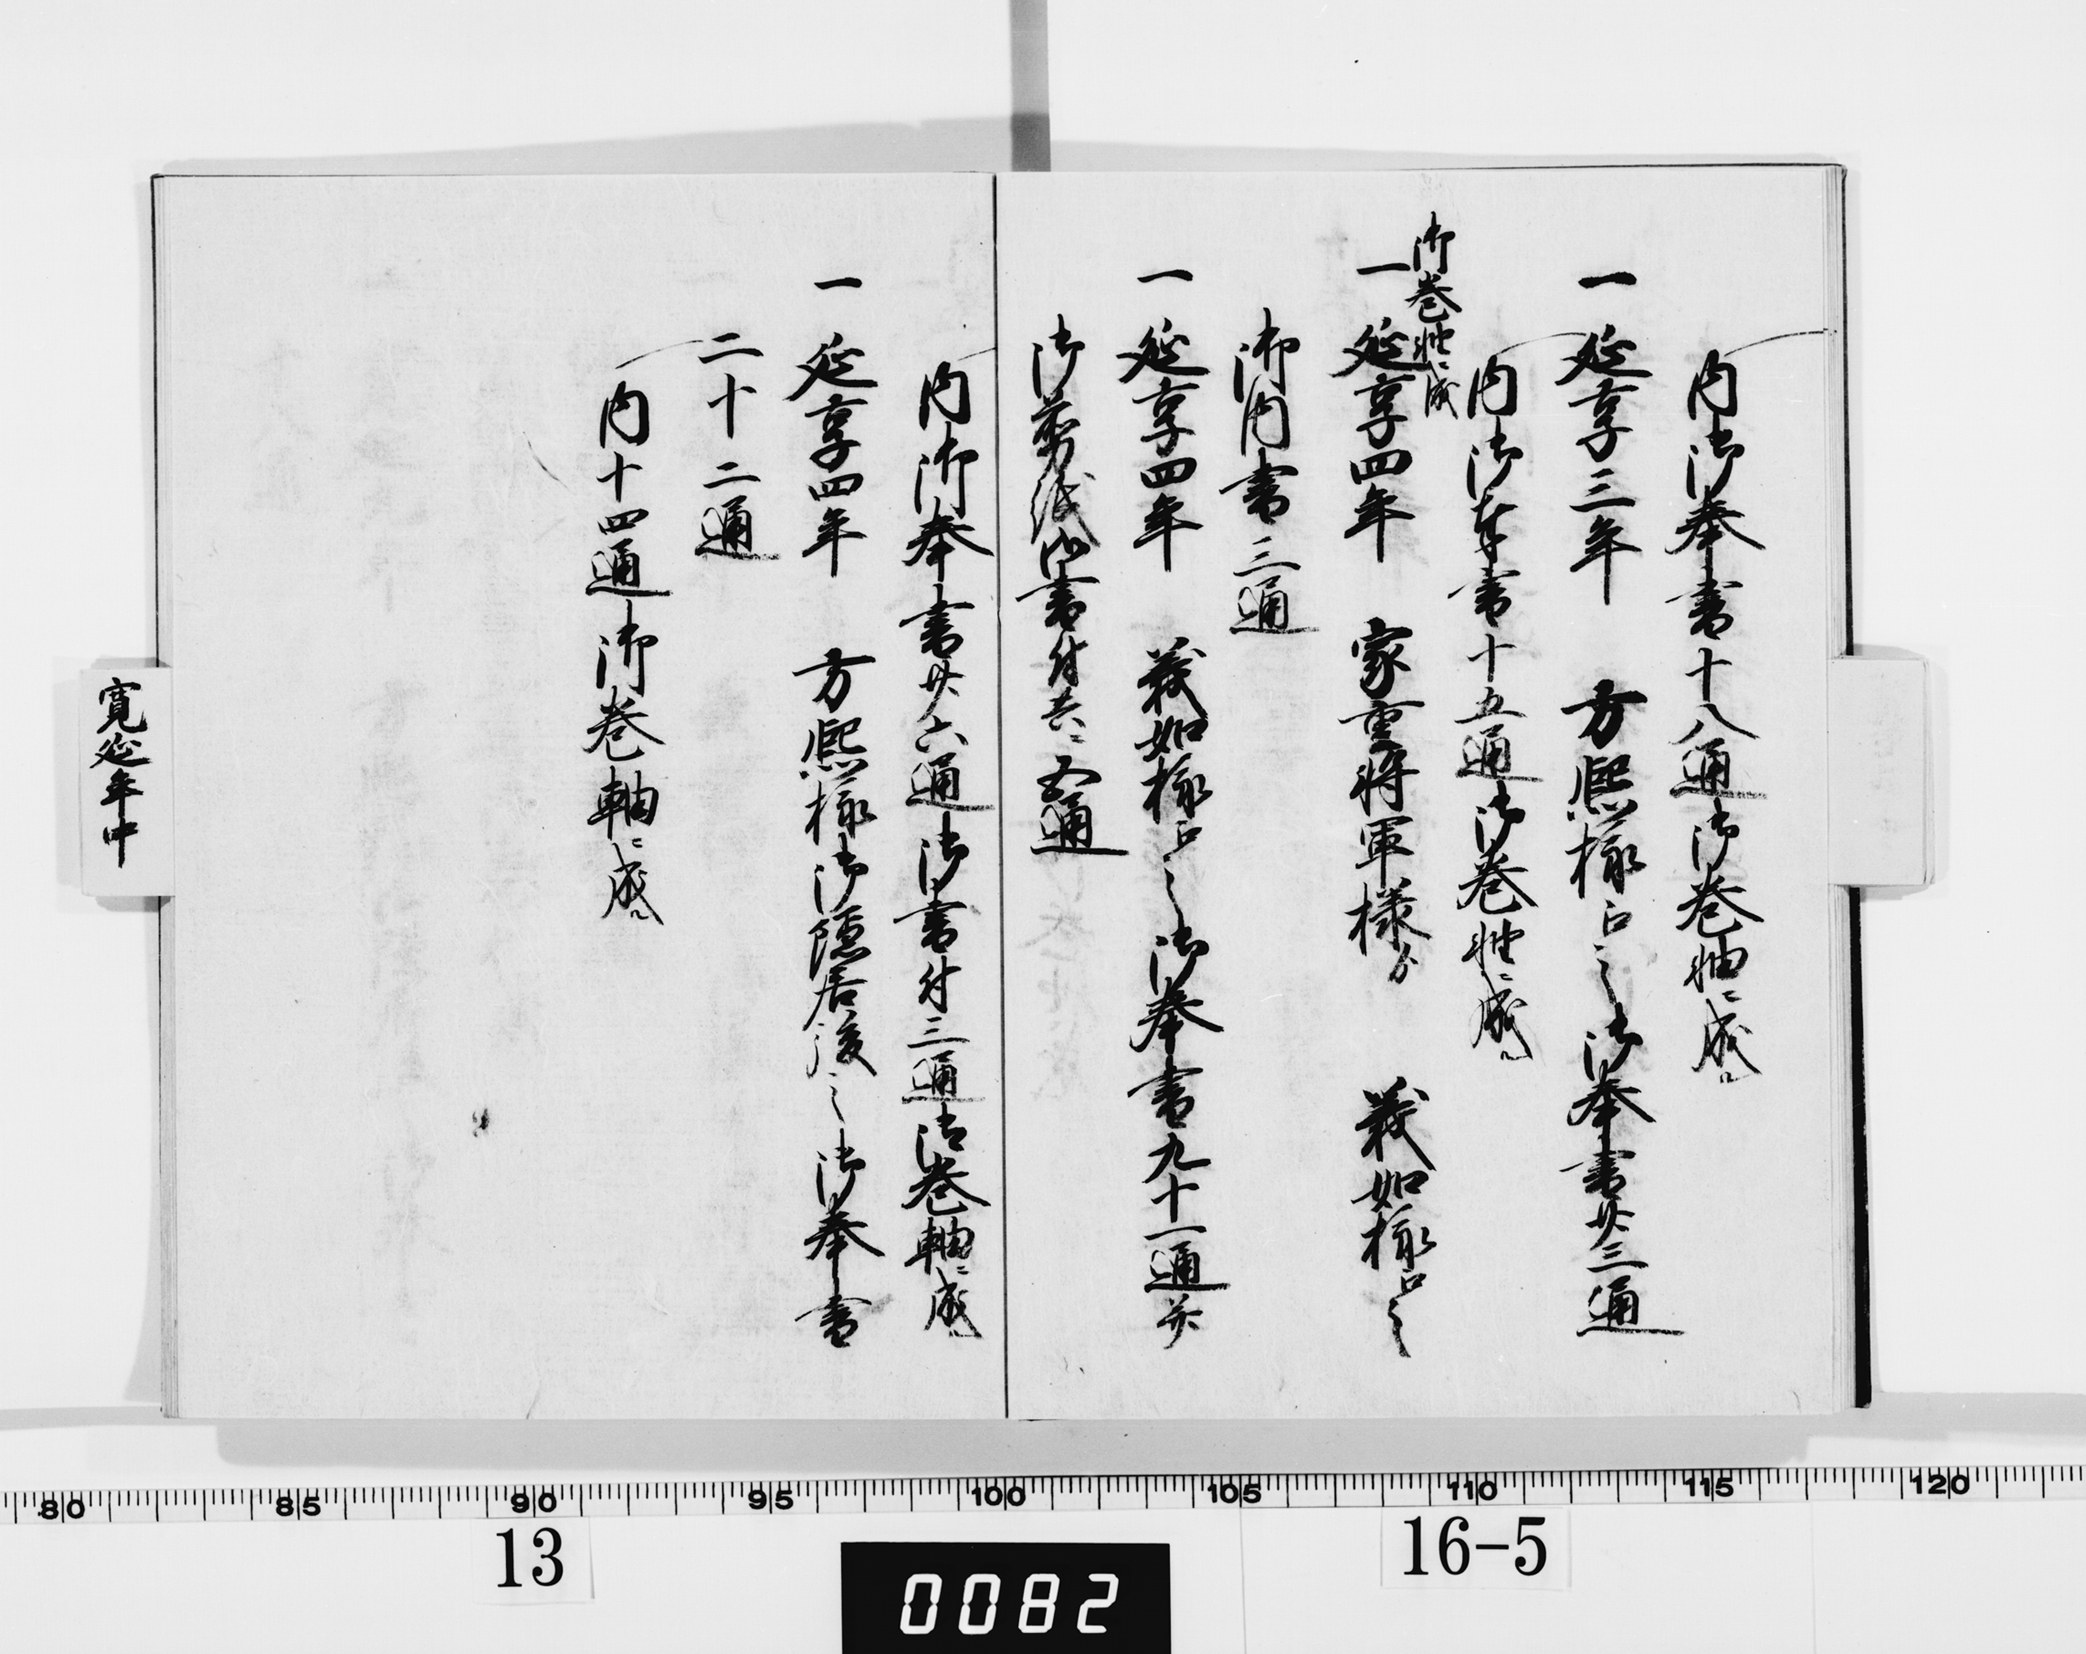 内御奉書十八通御巻軸ニ成ル
一 延享三年 方熈様江之御奉書廿三通
内御奉書十五通御巻軸ニ成ル
御巻軸ニ成
一 延享四年 家重将軍様ゟ 義如様江之
御内書三通
一 延享四年 義如様江之御奉書九十一通并
御剪紙御書付共ニ五通
内御奉書廿六通御書付三通御巻軸ニ成ル
一 延享四年 方熈様御隠居後之御奉書
二十二通
内十四通御巻軸ニ成ル
寛延年中
80 85 90 95 100 105 110 115 120
13
0082
16-5